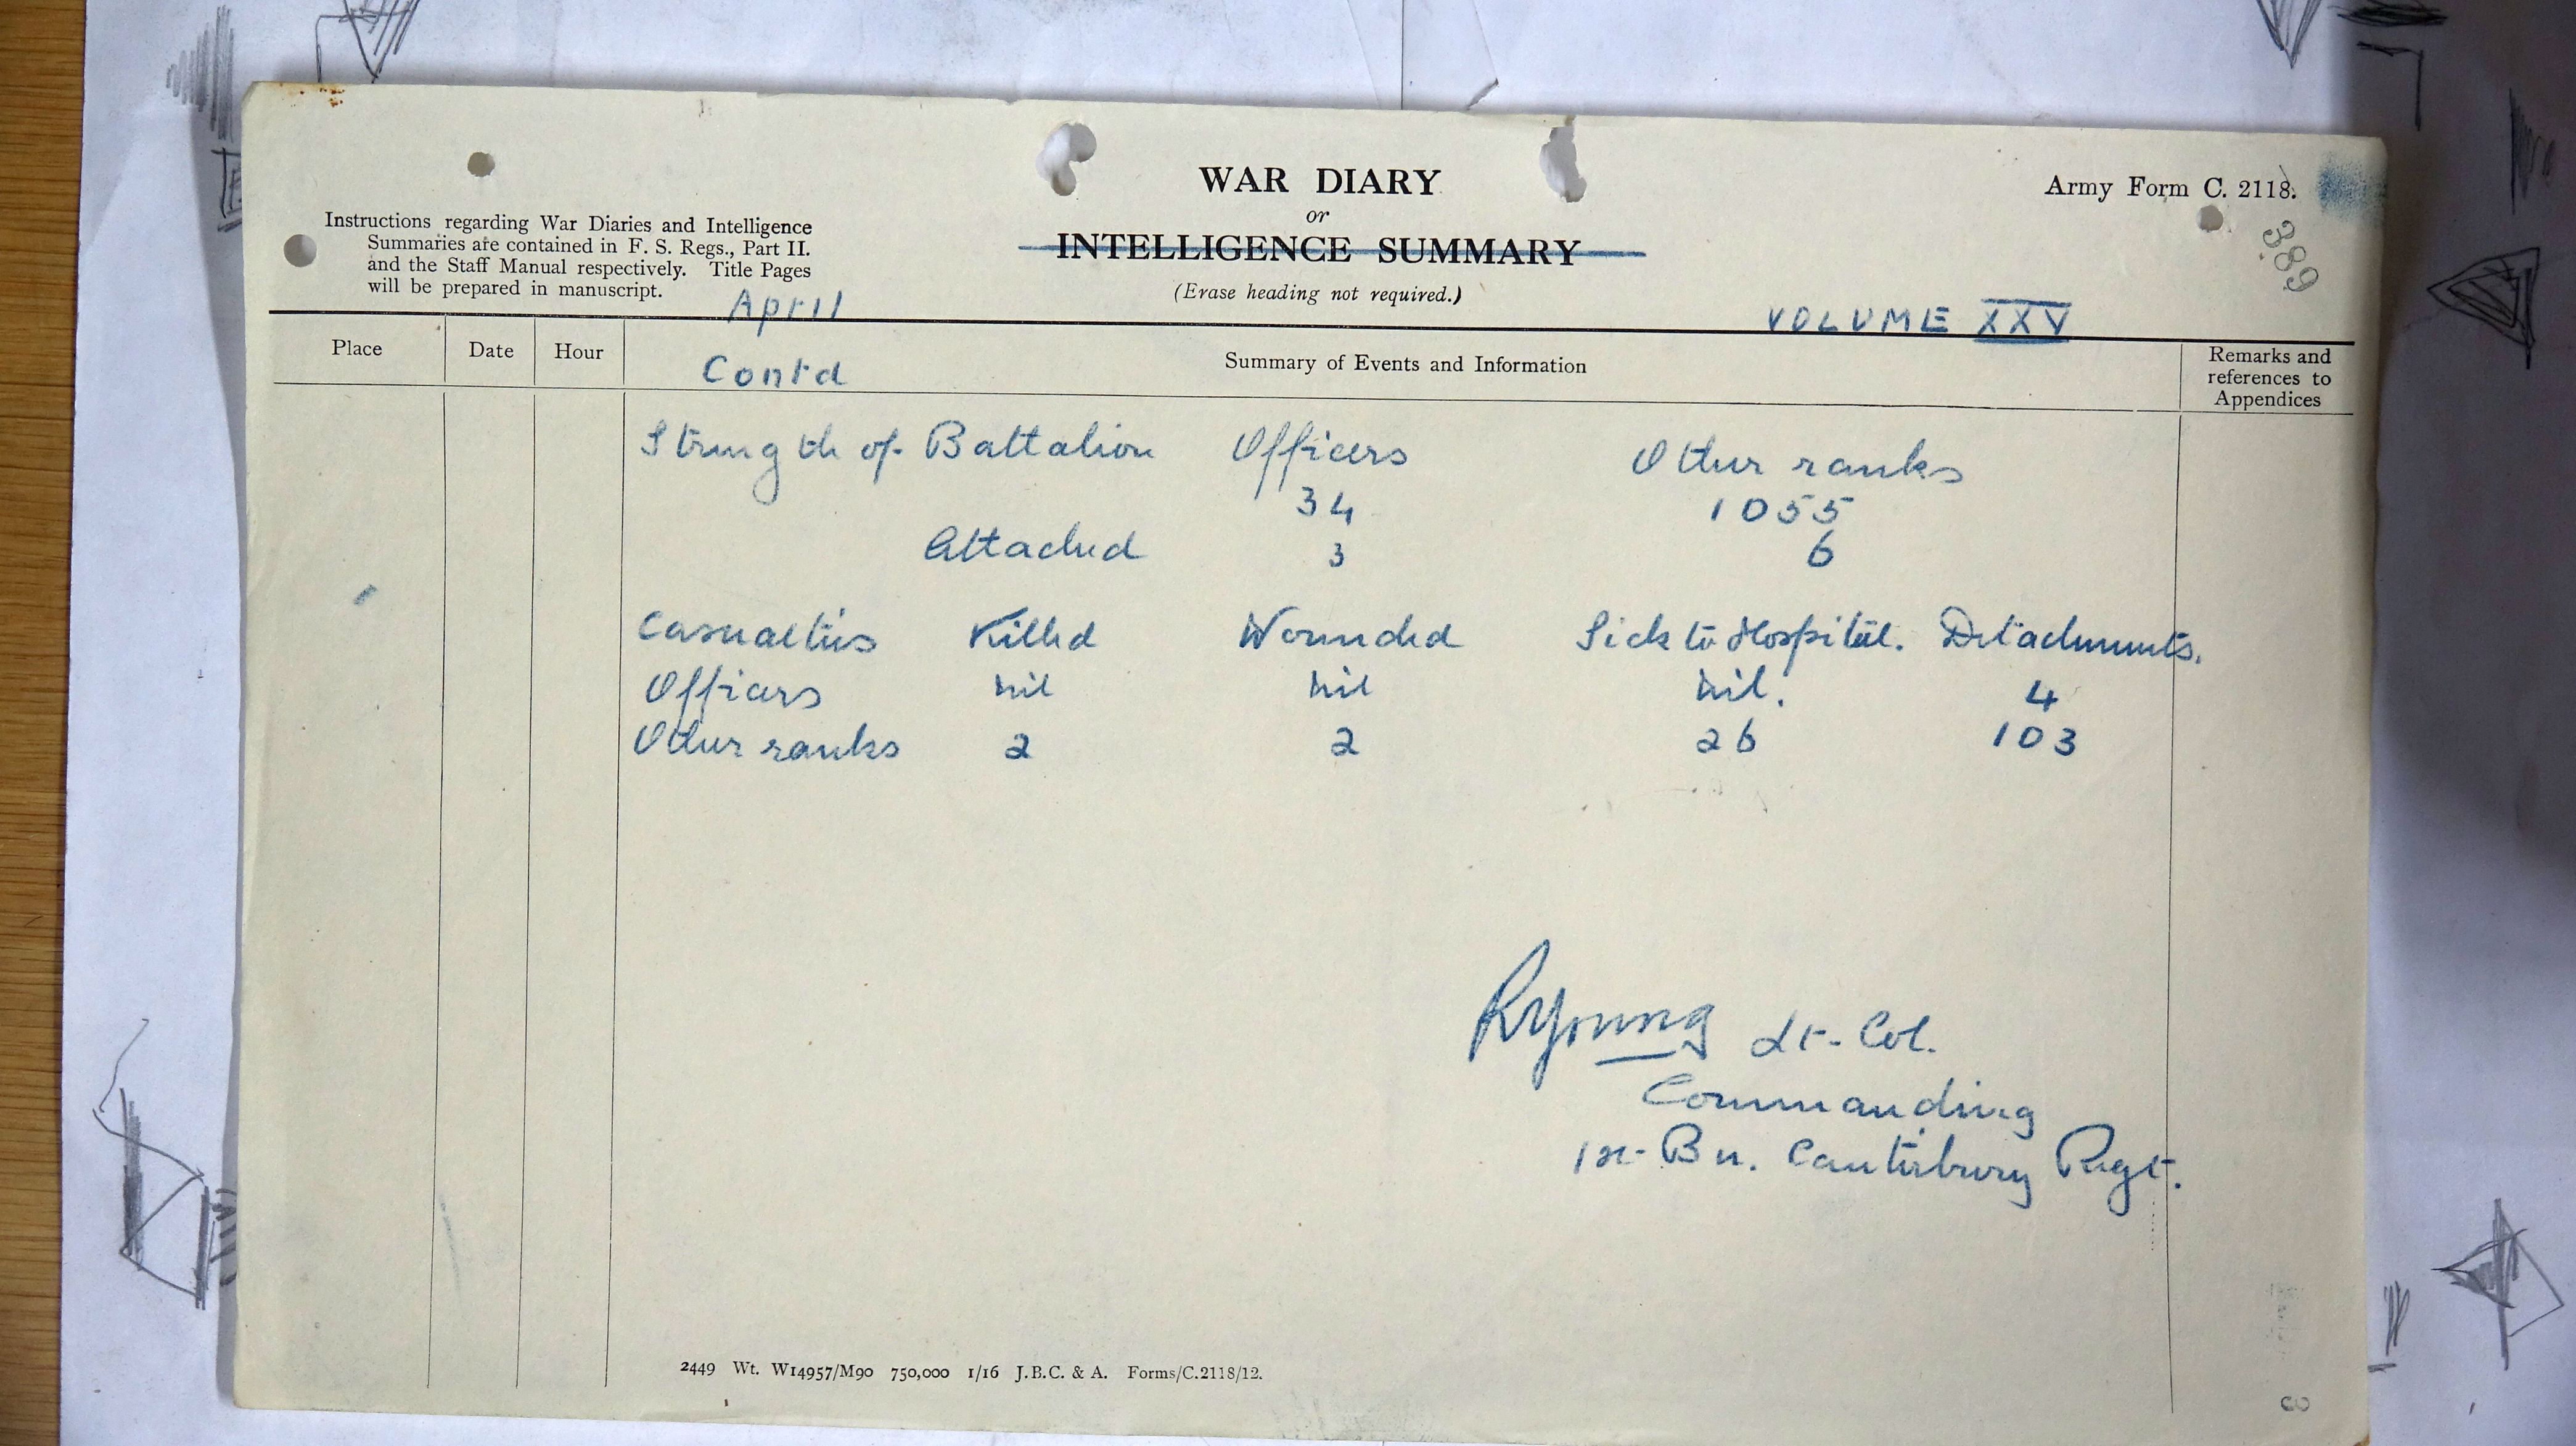 WAR DIARY
or
INTELLIGENCE SUMMARY
(Erase heading not required.)
Army Form C. 2118.
389
Instructions regarding War Diaries and Intelligence
Summaries are contained in F. S. Regs., Part II.
and the Staff Manual respectively. Title Pages
will be prepared in manuscript.
April
VOLUME XXV
Place Date Hour Contd Summary of Events and Information Remarks and
references to
Appendices
Strength of Battalion Officers Other ranks
34 1055
Attached 3 6
Casualties Killed Wounded Sick to Hospital. Detachments.
Officers nil nil nil. 4
Other ranks 2 2 26 103
RYoung Lt-Col.
Commanding
1st Bn. Canterbury Regt.
2449 Wt. W14957/M90 750,000 1/16 J.B.C. & A. Forms/C.2118/12.